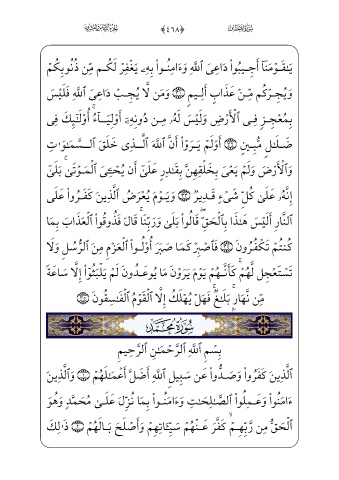 سورة الأحقاف ﴿٤٦٨﴾ الجزء السادس والعشرون
يَـٰقَوْمَنَآ أَجِيبُوا۟ دَاعِىَ ٱللَّهِ وَءَامِنُوا۟ بِهِۦ يَغْفِرْ لَكُم مِّن ذُنُوبِكُمْ
وَيُجِرْكُم مِّنْ عَذَابٍ أَلِيمٍ ﴿٣١﴾ وَمَن لَّا يُجِبْ دَاعِىَ ٱللَّهِ فَلَيْسَ
بِمُعْجِزٍ فِى ٱلْأَرْضِ وَلَيْسَ لَهُۥ مِن دُونِهِۦٓ أَوْلِيَآءُ ۚ أُو۟لَـٰٓئِكَ فِى
ضَلَـٰلٍ مُّبِينٍ ﴿٣٢﴾ أَوَلَمْ يَرَوْا۟ أَنَّ ٱللَّهَ ٱلَّذِى خَلَقَ ٱلسَّمَـٰوَٰتِ
وَٱلْأَرْضَ وَلَمْ يَعْىَ بِخَلْقِهِنَّ بِقَـٰدِرٍ عَلَىٰٓ أَن يُحْـِۧىَ ٱلْمَوْتَىٰ ۚ بَلَىٰٓ
إِنَّهُۥ عَلَىٰ كُلِّ شَىْءٍ قَدِيرٌ ﴿٣٣﴾ وَيَوْمَ يُعْرَضُ ٱلَّذِينَ كَفَرُوا۟ عَلَى
ٱلنَّارِ أَلَيْسَ هَـٰذَا بِٱلْحَقِّ ۖ قَالُوا۟ بَلَىٰ وَرَبِّنَا ۚ قَالَ فَذُوقُوا۟ ٱلْعَذَابَ بِمَا
كُنتُمْ تَكْفُرُونَ ﴿٣٤﴾ فَٱصْبِرْ كَمَا صَبَرَ أُو۟لُوا۟ ٱلْعَزْمِ مِنَ ٱلرُّسُلِ وَلَا
تَسْتَعْجِل لَّهُمْ ۚ كَأَنَّهُمْ يَوْمَ يَرَوْنَ مَا يُوعَدُونَ لَمْ يَلْبَثُوٓا۟ إِلَّا سَاعَةً
مِّن نَّهَارٍۭ ۚ بَلَـٰغٌ ۚ فَهَلْ يُهْلَكُ إِلَّا ٱلْقَوْمُ ٱلْفَـٰسِقُونَ ﴿٣٥﴾
سُورَةُ مُحَمَّدٍ
بِسْمِ ٱللَّهِ ٱلرَّحْمَـٰنِ ٱلرَّحِيمِ
ٱلَّذِينَ كَفَرُوا۟ وَصَدُّوا۟ عَن سَبِيلِ ٱللَّهِ أَضَلَّ أَعْمَـٰلَهُمْ ﴿١﴾ وَٱلَّذِينَ
ءَامَنُوا۟ وَعَمِلُوا۟ ٱلصَّـٰلِحَـٰتِ وَءَامَنُوا۟ بِمَا نُزِّلَ عَلَىٰ مُحَمَّدٍ وَهُوَ
ٱلْحَقُّ مِن رَّبِّهِمْ ۙ كَفَّرَ عَنْهُمْ سَيِّـَٔاتِهِمْ وَأَصْلَحَ بَالَهُمْ ﴿٢﴾ ذَٰلِكَ